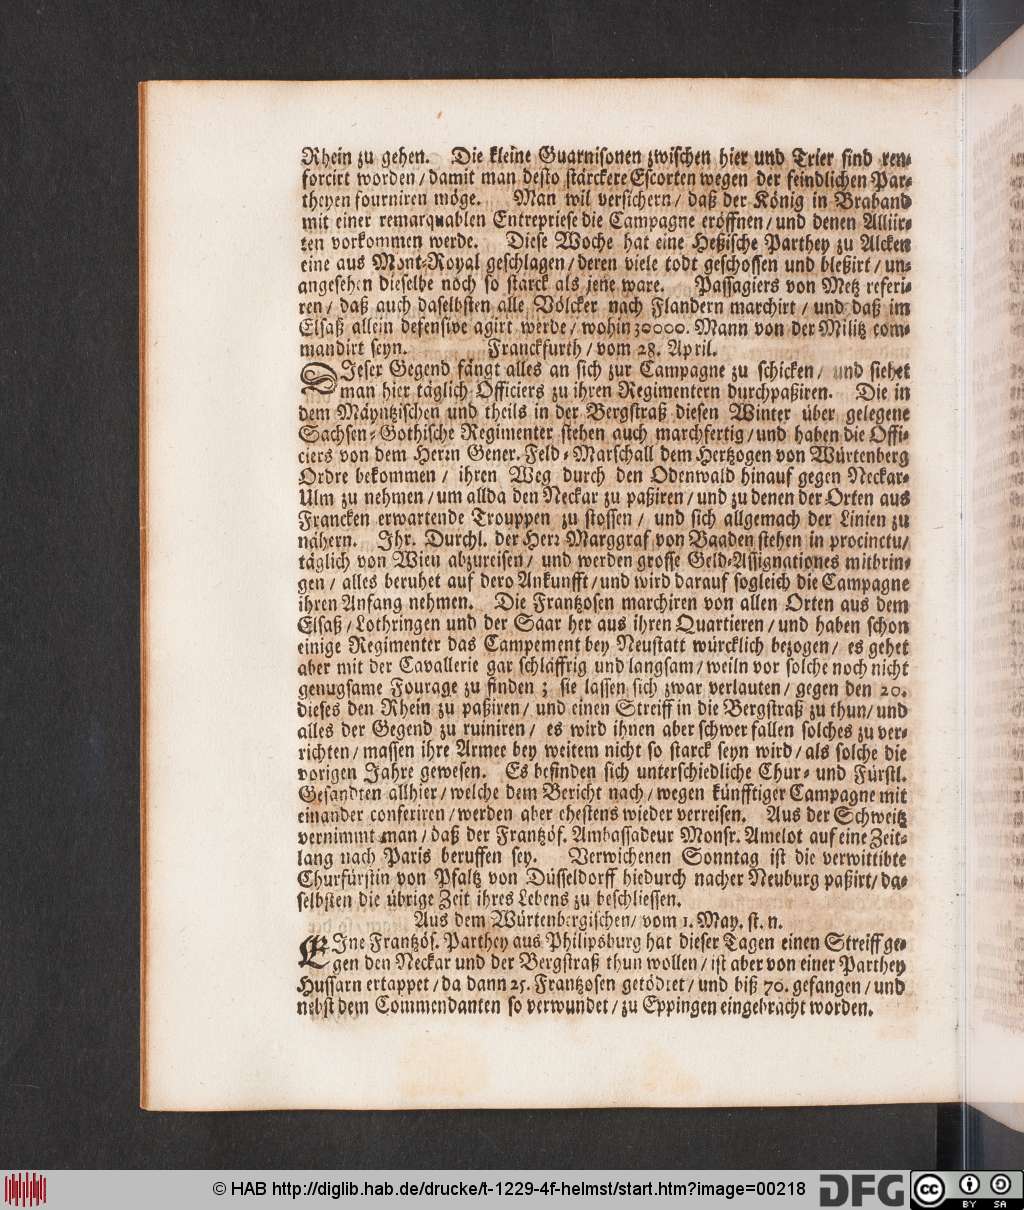 Rhein zu gehen. Die kleine Guarnisonen zwischen hier und Trier sind ren-
forcirt worden / damit man desto stärckere Escorten wegen der feindlichen Par-
theyen fourniren möge. Man wil versichern / daß der König in Braband
mit einer remarquablen Entrepriese die Campagne eröffnen / und denen Alliir-
ten vorkommen werde. Diese Woche hat eine Heßische Parthey zu Alcken
eine aus Mont-Royal geschlagen / deren viele todt geschossen und bleßirt / un-
angesehen dieselbe noch so starck als jene ware. Passagiers von Metz referi-
ren / daß auch daselbsten alle Völcker nach Flandern marchirt / und daß im
Elsaß allein defensive agirt werde / wohin 30000. Mann von der Militz com-
mandirt seyn. Franckfurth / vom 28. April.
DIeser Gegend fängt alles an sich zur Campagne zu schicken / und siehet
man hier täglich Officiers zu ihren Regimentern durchpaßiren. Die in
dem Mäyntzischen und theils in der Bergstraß diesen Winter über gelegene
Sachsen-Gothische Regimenter stehen auch marchfertig / und haben die Offi-
ciers von dem Herrn Gener. Feld-Marschall dem Hertzogen von Würtenberg
Ordre bekommen / ihren Weg durch den Odenwald hinauf gegen Neckar-
Ulm zu nehmen / um allda den Neckar zu paßiren / und zu denen der Orten aus
Francken erwartende Trouppen zu stossen / und sich allgemach der Linien zu
nähern. Ihr. Durchl. der Herr Marggraf von Baaden stehen in procinctu /
täglich von Wien abzureisen / und werden grosse Geld-Assignationes mitbrin-
gen / alles beruhet auf dero Ankunfft / und wird darauf sogleich die Campagne
ihren Anfang nehmen. Die Frantzosen marchiren von allen Orten aus dem
Elsaß / Lothringen und der Saar her aus ihren Quartieren / und haben schon
einige Regimenter das Campement bey Neustatt würcklich bezogen / es gehet
aber mit der Cavallerie gar schläffrig und langsam / weiln vor solche noch nicht
genugsame Fourage zu finden ; sie lassen sich zwar verlauten / gegen den 20.
dieses den Rhein zu paßiren / und einen Streiff in die Bergstraß zu thun / und
alles der Gegend zu ruiniren / es wird ihnen aber schwer fallen solches zu ver-
richten / massen ihre Armee bey weitem nicht so starck seyn wird / als solche die
vorigen Jahre gewesen. Es befinden sich unterschiedliche Chur- und Fürstl.
Gesandten allhier / welche dem Bericht nach / wegen künfftiger Campagne mit
einander conferiren / werden aber ehestens wieder verreisen. Aus der Schweitz
vernimmt man / daß der Frantzös. Ambassadeur Monsr. Amelot auf eine Zeit-
lang nach Paris beruffen sey. Verwichenen Sonntag ist die verwittibte
Churfürstin von Pfaltz von Düsseldorff hiedurch nacher Neuburg paßirt / da-
selbsten die übrige Zeit ihres Lebens zu beschliessen.
Aus dem Würtenbergischen / vom 1. May. st. n.
EIne Frantzös. Parthey aus Philipsburg hat dieser Tagen einen Streiff ge-
gen den Neckar und der Bergstraß thun wollen / ist aber von einer Parthey
Hussarn ertappet / da dann 25. Frantzosen getödtet / und biß 70. gefangen / und
nebst dem Commendanten so verwundet / zu Eppingen eingebracht worden.
© HAB http://diglib.hab.de/drucke/t-1229-4f-helmst/start.htm?image=00218
DFG
cc BY SA